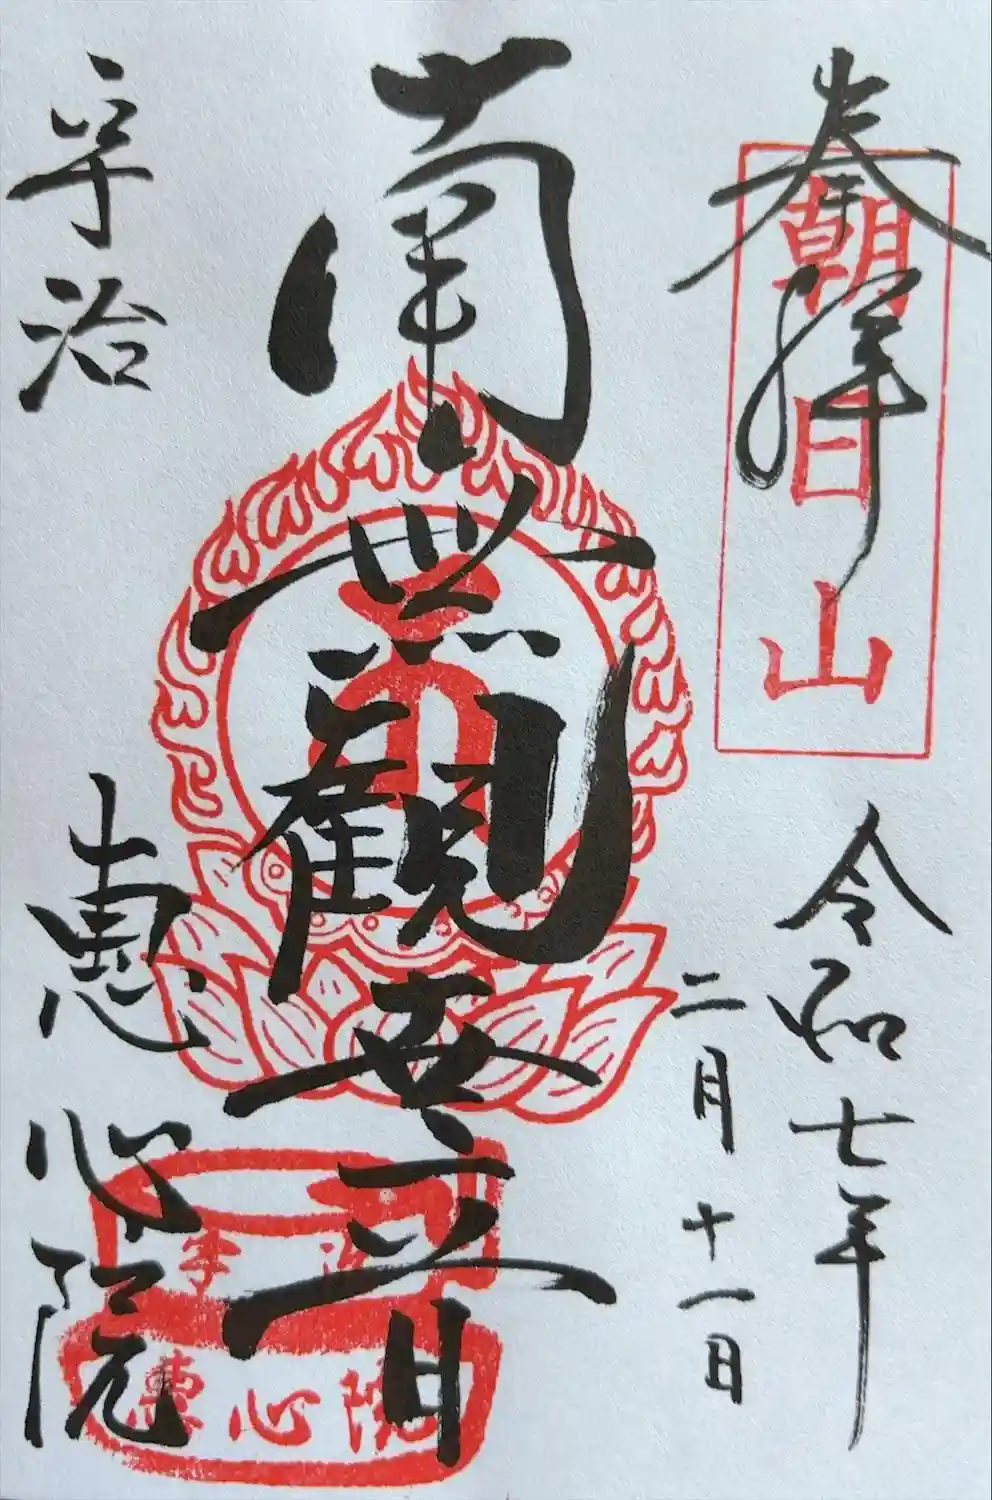 奉拝
朝日山
令和七年
二月十一日
南無観世音
宇治
恵心院
宇治
恵心院